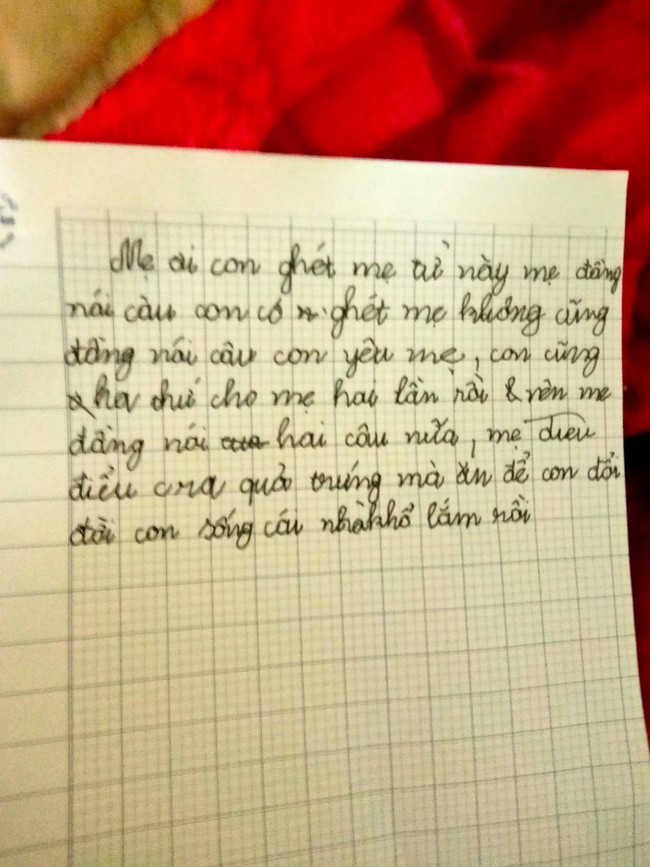 Mẹ ơi con ghét mẹ từ này mẹ đừng
nói câu con có ghét mẹ không cũng
đừng nói câu con yêu mẹ, con cũng
tha thứ cho mẹ hai lần rồi & nên mẹ
đừng nói hai câu nữa, mẹ
điểu cra quả trứng mà ăn để con đổi
đời con sống cái nhà khổ lắm rồi